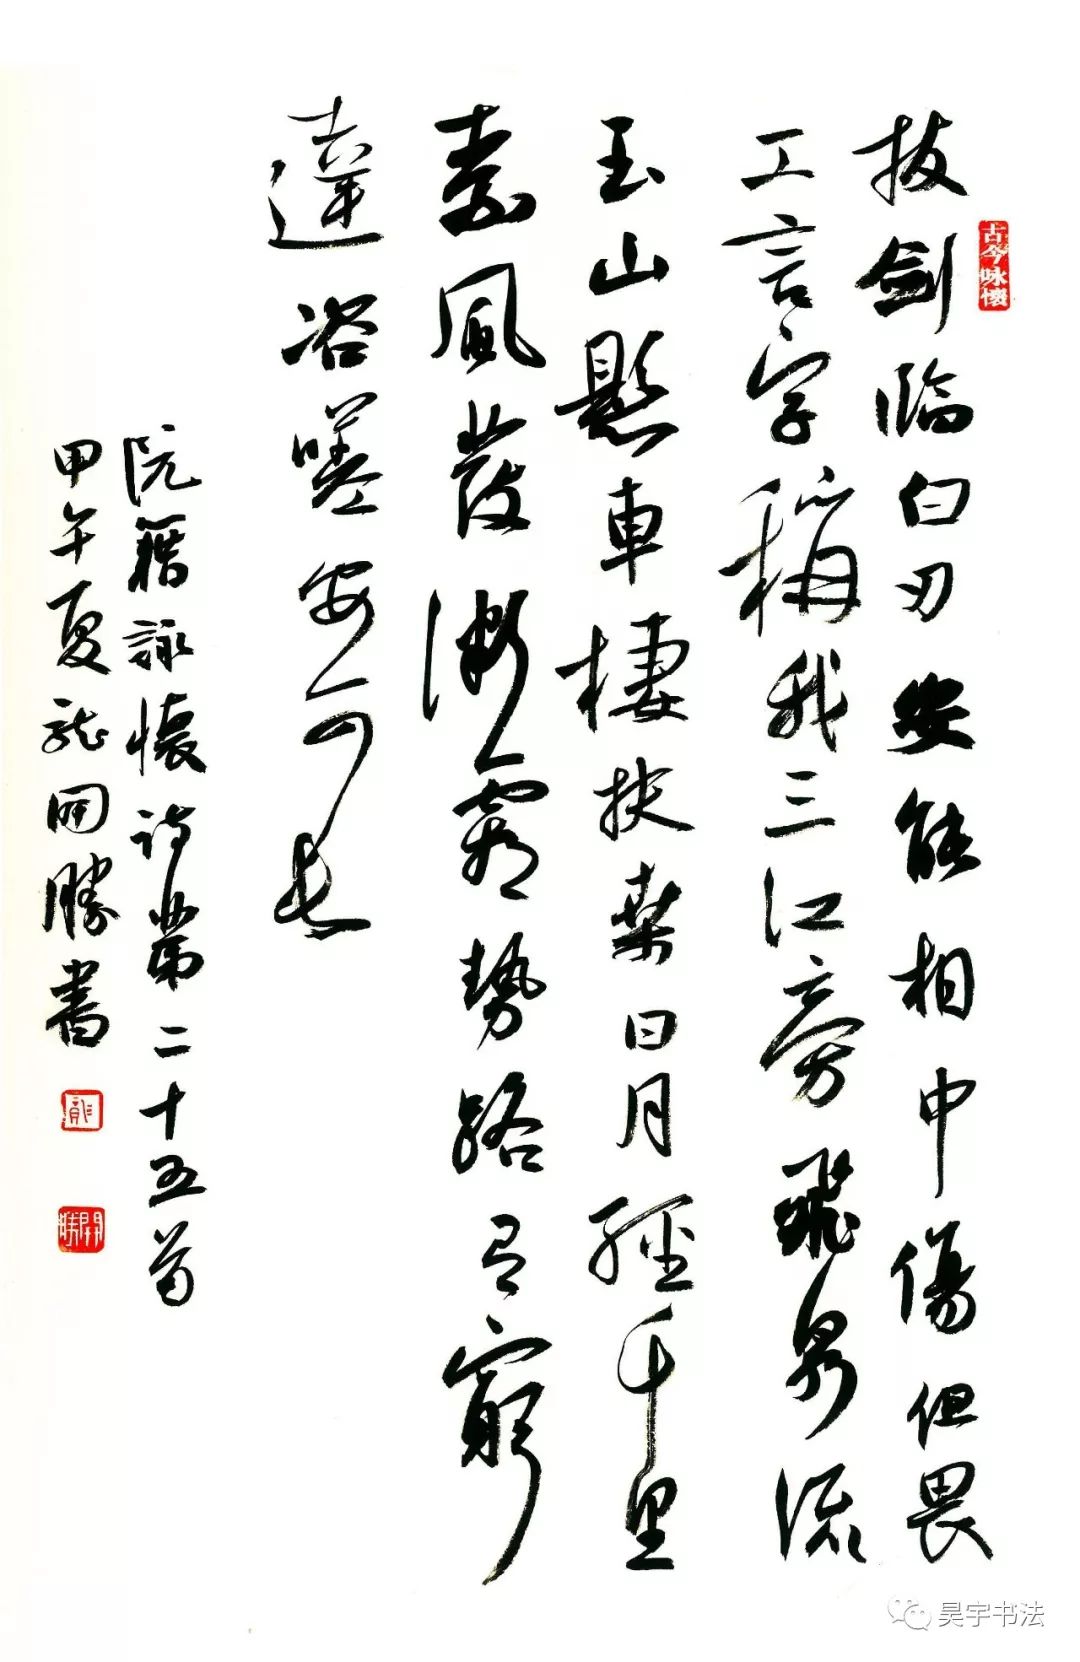 古今咏懷
拔劍臨白刃安能相中傷但畏
工言字稱我三江旁飛泉流
玉山懸車棲扶桒日月經千里
素風發微霜勢路有窮
達咨嗟安可長
阮籍詠懷詩第二十五首
甲午夏龍開勝書
龍
開勝
昊宇书法